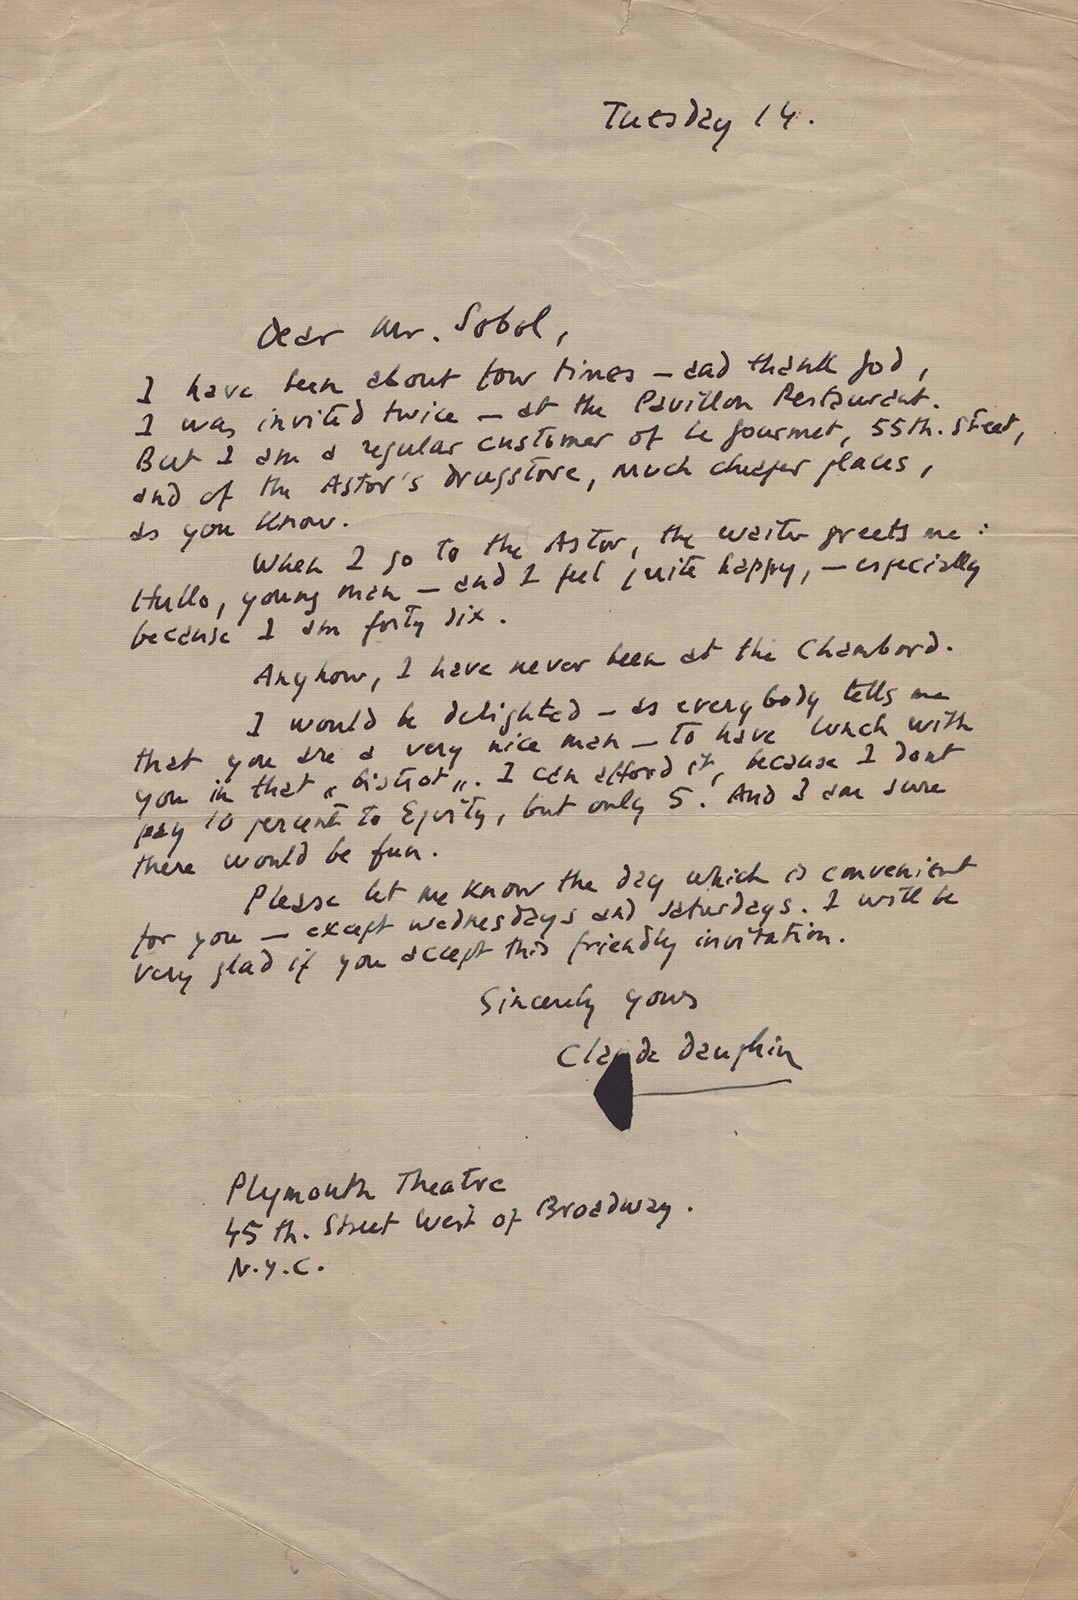 Tuesday 14.
Dear Mr. Sobol,
I have been about four times — and thank god,
I was invited twice — at the Pavillon Restaurant.
But I am a regular customer of Le gourmet, 55th. Street,
and of the Astor's drugstore, much cheaper places,
as you know.
When I go to the Astor, the waiter greets me :
Hullo, young man — and I feel quite happy, — especially
because I am forty six.
Anyhow, I have never been at the Chambord.
I would be delighted — as everybody tells me
that you are a very nice man — to have lunch with
you in that „ bistrot „. I can afford it, because I dont
pay 10 percent to Equity, but only 5. And I am sure
there would be fun.
Please let me know the day which is convenient
for you — except wednesdays and saturdays. I will be
very glad if you accept this friendly invitation.
Sincerely yours
Claude Dauphin
Plymouth Theatre
45 th. Street West of Broadway.
N.Y.C.